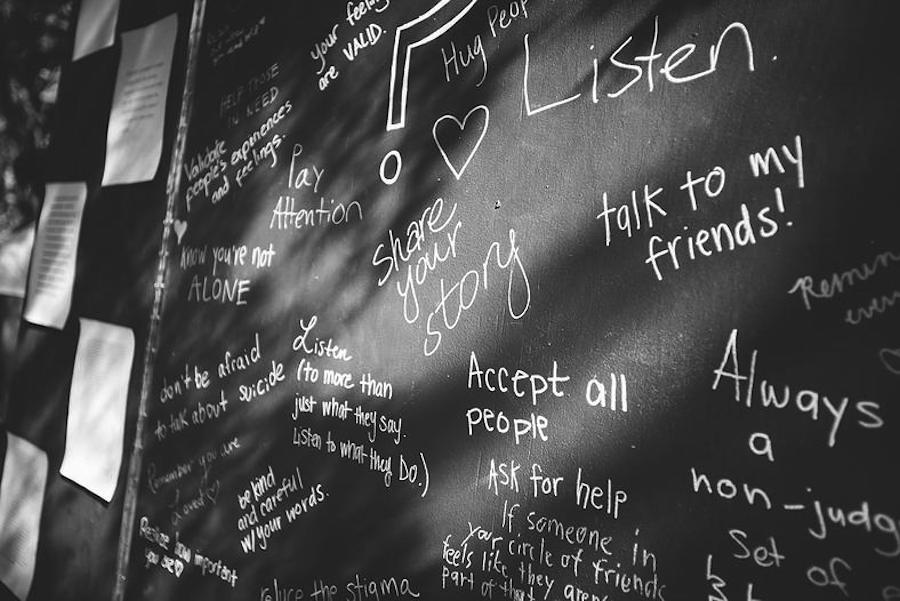 your feelings
are VALID.
Hug Peop
Listen.
HELP THOSE
IN NEED
Validate
people's experiences
and feelings.
Pay
Attention
Know you're not
ALONE
share
your
story
talk to my
friends!
Remem
every
don't be afraid
to talk about suicide
Listen
(to more than
just what they say.
Listen to what they Do.)
Accept all
people
Always
a
non-judg
Set
of
Ask for help
If someone in
your circle of friends
feels like they aren't
part of that
Remember you are
Loved
be kind
and careful
w/your words.
how important
you are
reduce the stigma